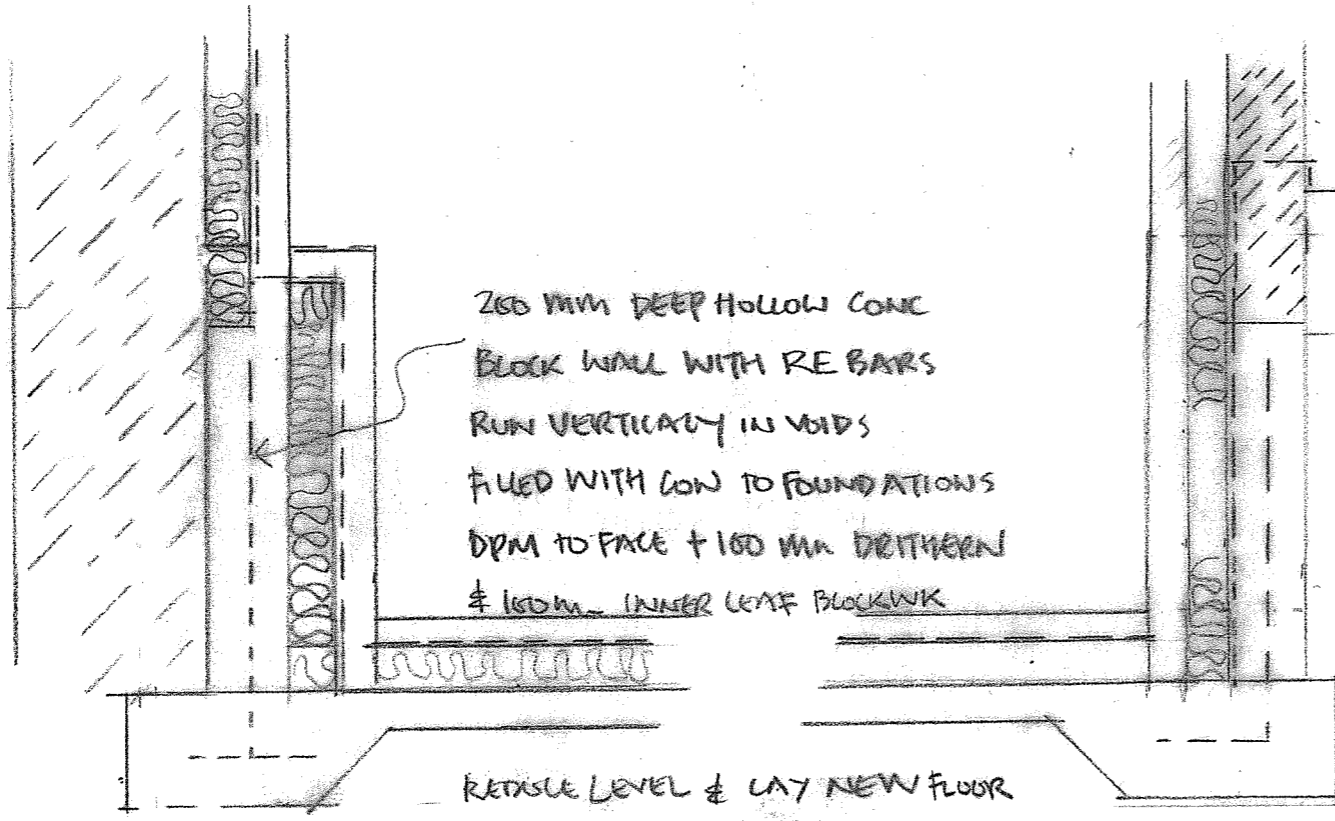 200 MM DEEP HOLLOW CONC
BLOCK WALL WITH RE BARS
RUN VERTICALY IN VOIDS
FILLED WITH CON TO FOUNDATIONS
DPM TO FACE + 100 MM DRITHERN
& 100M_ INNER LEAF BLOCKWK
LEVEL & LAY NEW FLOOR